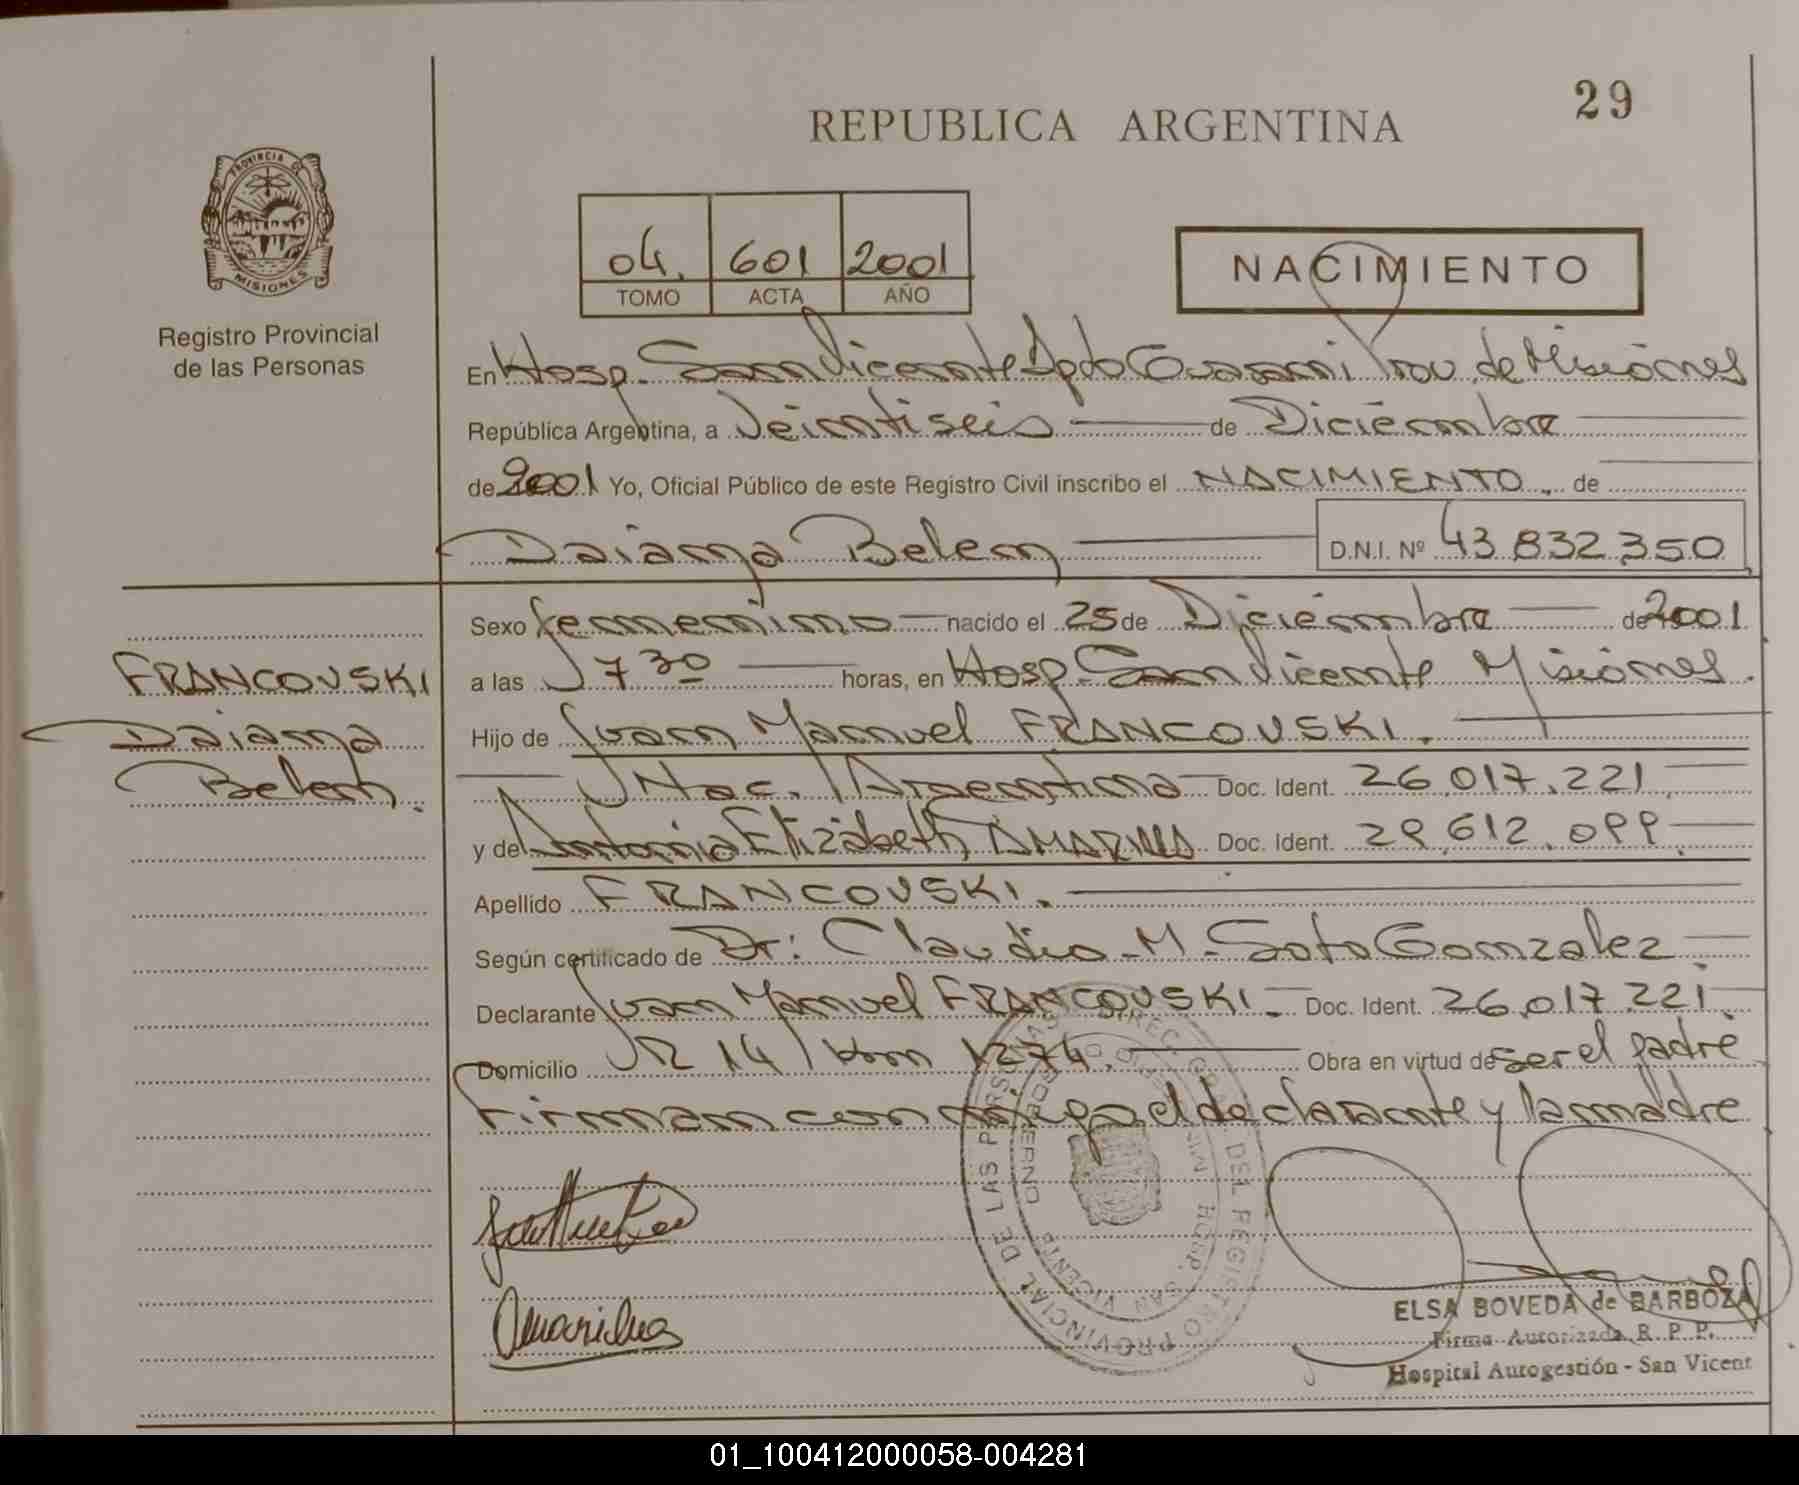 29
REPUBLICA ARGENTINA
PROVINCIA DE
MISIONES
Registro Provincial
de las Personas
04. 601 2001
TOMO ACTA AÑO
NACIMIENTO
En Hosp. San Vicente Dpto Guaraní Prov. de Misiones
República Argentina, a Veintiseis de Diciembre
de 2001 Yo, Oficial Público de este Registro Civil inscribo el NACIMIENTO. de
Daiana Belen D.N.I. Nº 43.832.350
Sexo femenino nacido el 25 de Diciembre de 2001
a las 7 30 horas, en Hosp. San Vicente Misiones.
Hijo de Juan Manuel FRANCOVSKI.
Nac. Argentina Doc. Ident. 26.017.221
y de Antonia Elizabeth AMARILLA Doc. Ident. 29.612.099
Apellido FRANCOVSKI.
Según certificado de Dr: Claudio M. Soto Gonzalez
Declarante Juan Manuel FRANCOVSKI Doc. Ident. 26.017.221
Domicilio R 14 / km 1274. Obra en virtud de ser el padre
Firman con migo el declarante y la madre
FRANCOVSKI
Daiana
Belen.
Amarilla
DIREC. GRAL. DEL REGISTRO PROVINCIAL DE LAS PERSONAS
HOSP. SAN VICENTE
ELSA BOVEDA de BARBOZA
Firma Autorizada R. P. P.
Hospital Autogestión - San Vicent
01_100412000058-004281